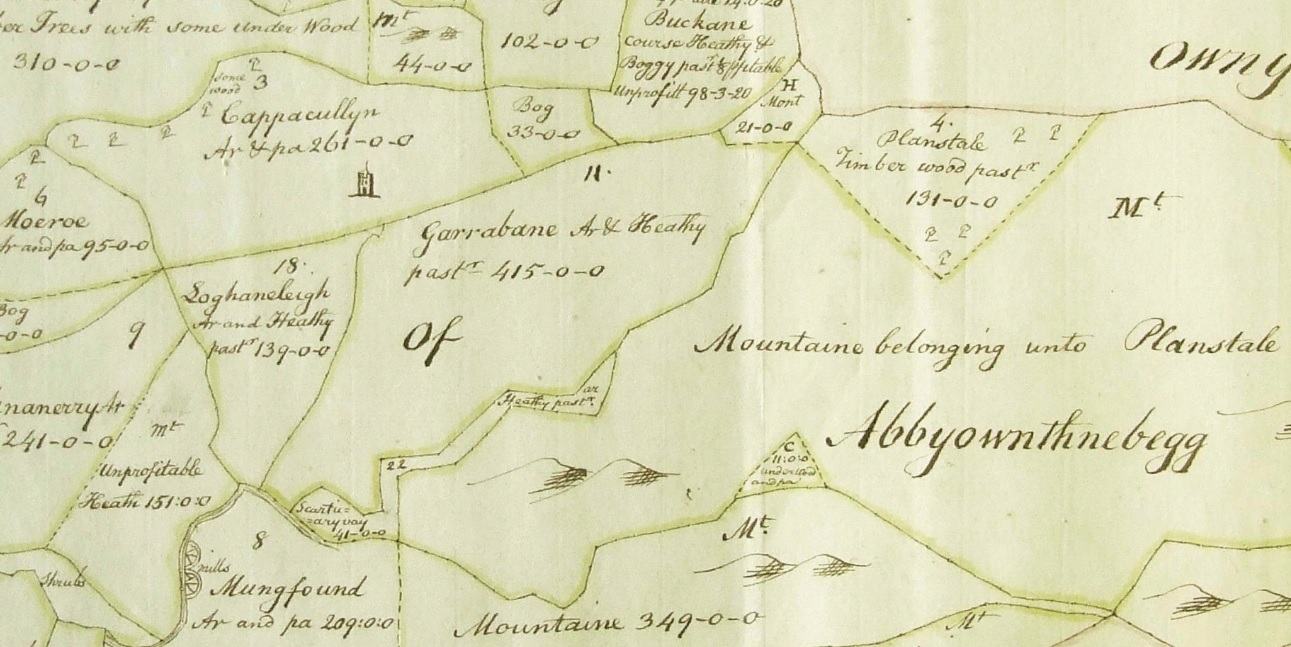 er Trees with some under Wood
310-0-0
Mt
44-0-0
102-0-0
Buckane
course Heathy &
Boggy past
unprofitt 98-3-20
H
Mont
21-0-0
Owny
some
wood 3
Cappacullyn
Ar & pa 261-0-0
Bog
33-0-0
4.
Planstale
Timber wood pastr
131-0-0
Mt
6
Moeroe
Ar and pa 95-0-0
11.
Garrabane Ar & Heathy
pastr 415-0-0
18.
Loghaneleigh
Ar and Heathy
pastr 139-0-0
Bog
-0-0
9
Of
Mountaine belonging unto Planstale
Abbyownthnebegg
ar
Heathy pastr
nanerry Ar
241-0-0
mt
Unprofitable
Heath 151:0:0
22
C
11:0:0
underwood
and pa
Scartu=
=aryvay
41-0-0
Mt
8
mills
Mungfound
Ar and pa 209:0:0
Shrubs
Mountaine 349-0-0
Mt